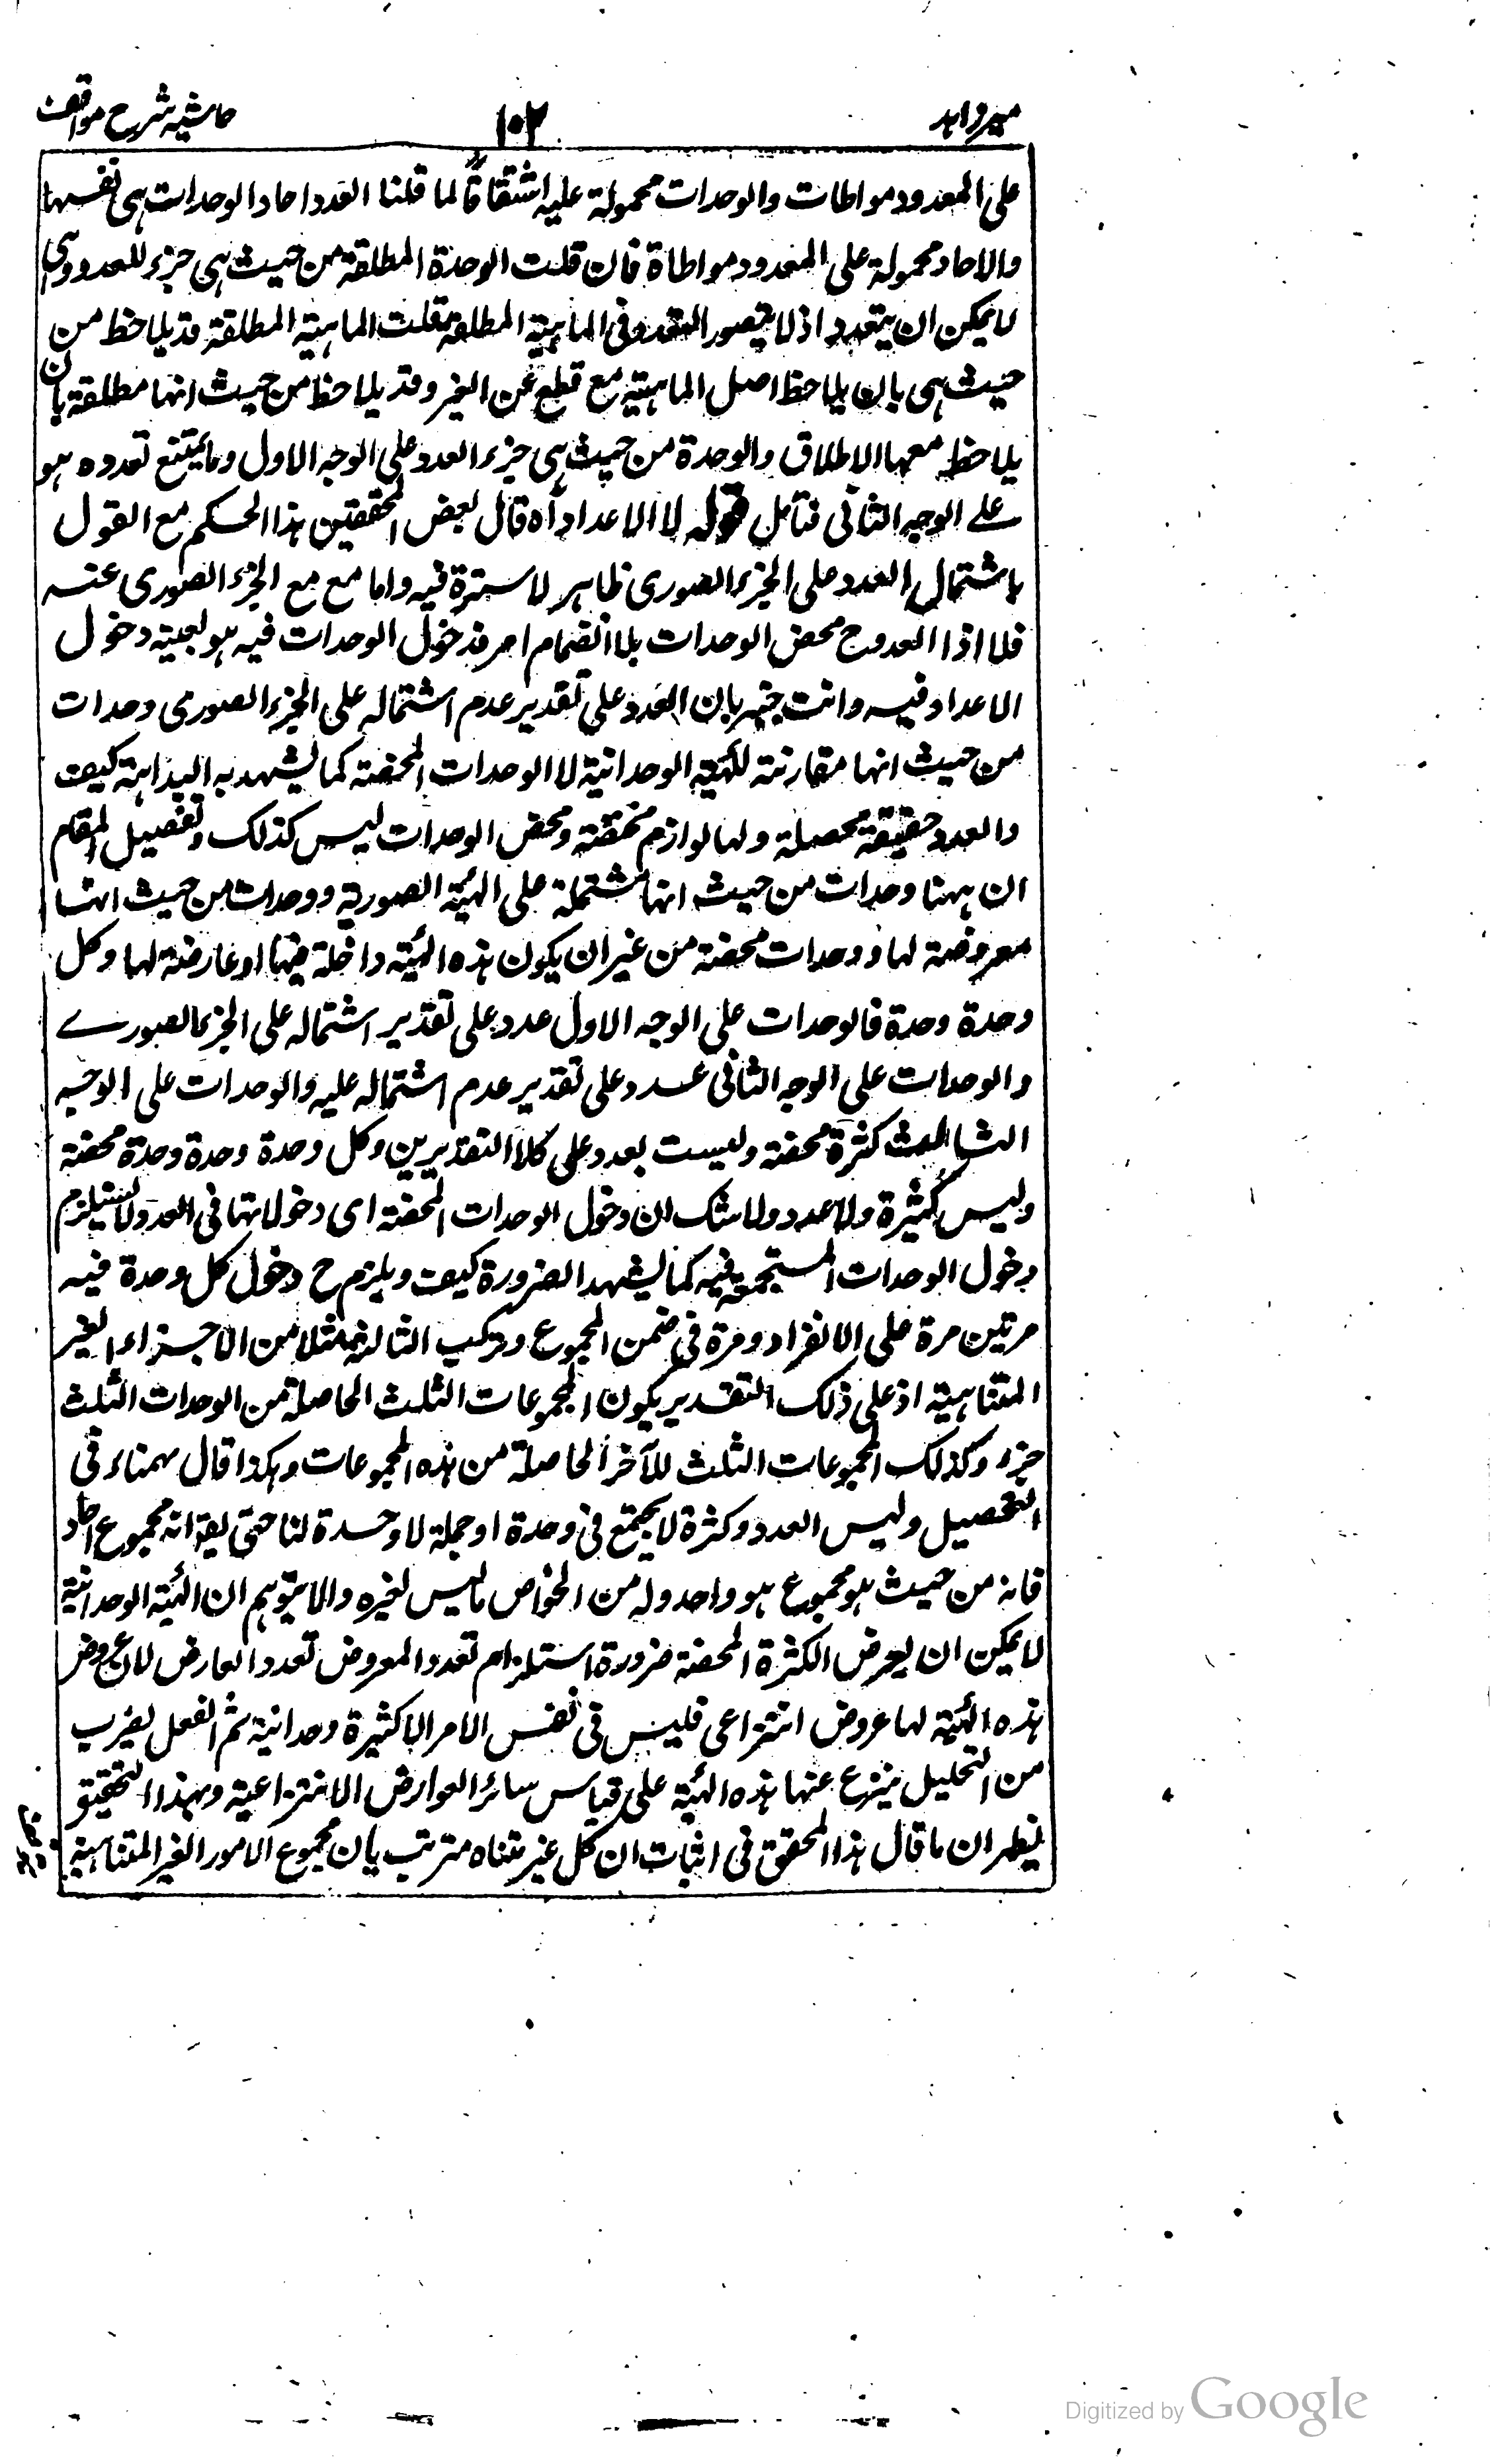 ميرزاهد ١٠٢ حاشيه شرح مواقف
على المعدود مواطات والوحدات محمولة عليه اشتقاقا قلنا لما قلنا العدد احاد الوحدات هى نفسها
والاحاد محمولة على المعدود مواطاة فان قلت الوحدة المطلقة من حيث هى جزء للعدد وهى
لا يمكن ان يتعدد اذ لا يتصور التعدد فى الماهية المطلقة قلت الماهية المطلقة قد يلاحظ من
حيث هى بان يلاحظ اصل الماهية مع قطع عن الغير وقد يلاحظ من حيث انها مطلقة بان
يلاحظ معها الاطلاق والوحدة من حيث هى جزء العدد على الوجه الاول وما يمتنع تعدده هو
على الوجه الثانى فتأمل قوله لا الاعداد آه قال بعض المحققين هذا الحكم مع القول
باشتمال العدد على الجزء الصورى ظاهر لا سترة فيه واما مع الجزء الصورى عنه
فلا اذا العدد ح محض الوحدات بلا انضمام امر فدخول الوحدات فيه هو بعينه دخول
الاعداد فيه وانت خبير بان العدد على تقدير عدم اشتماله على الجزء الصورى وحدات
من حيث انها مقارنة للهيئة الوحدانية لا الوحدات المحضة كما يشهد به البداهة كيف
والعدد حقيقة محصلة ولها لوازم مختصة ومحض الوحدات ليس كذلك وتفصيل المقام
ان ههنا وحدات من حيث انها مشتملة على الهيئة الصورية ووحدات من حيث انها
معروضة لها ووحدات محضة من غير ان يكون هذه الهيئة داخلة فيها او عارضة لها وكل
وحدة وحدة فالوحدات على الوجه الاول عدد على تقدير اشتماله على الجزء الصورے
والوحدات على الوجه الثانى عدد على تقدير عدم اشتماله عليه والوحدات على الوجه
الثالث كثرة محضة وليست بعدد على كلا التقديرين وكل وحدة وحدة وحدة محضة
وليس كثيرة ولا عدد ولا شك ان دخول الوحدات المحضة اى دخولاتها فى العدد لا يستلزم
دخول الوحدات المستجمعة فيه كما يشهد الضرورة كيف ويلزم ح دخول كل وحدة فيه
مرتين مرة على الانفراد ومرة فى ضمن المجموع وتركب الثالثة مثلا من الاجزاء الغير
المتناهية اذ على ذلك التقدير يكون المجموعات الثلث الحاصلة من الوحدات الثلث
جزء وكذلك المجموعات الثلث للآخر الحاصلة من هذه المجموعات وهكذا قال بهمناء فى
التحصيل وليس العدد كثرة لا يجتمع فى وحدة او جملة لا وحدة لنا حتى يقا انه مجموع احاد
فانه من حيث هو مجموع هو واحد وله من الخواص ما ليس لغيره ولا يتوهم ان الهيئة الوحدانية
لا يمكن ان يعرض الكثرة المحضة ضرورة استلزام تعدد المعروض تعدد العارض لان عروض
هذه الهيئة لها عروض انتزاعى فليس فى نفس الامر الا كثيرة وحدانية ثم العقل بضرب
من التحليل ينزع عنها هذه الهيئة على قياس سائر العوارض الانتزاعية وبهذا التحقيق
يظهر ان ما قال هذا المحقق فى اثبات ان كل غير متناه مترتب بان مجموع الامور الغير المتناهية
Digitized by Google